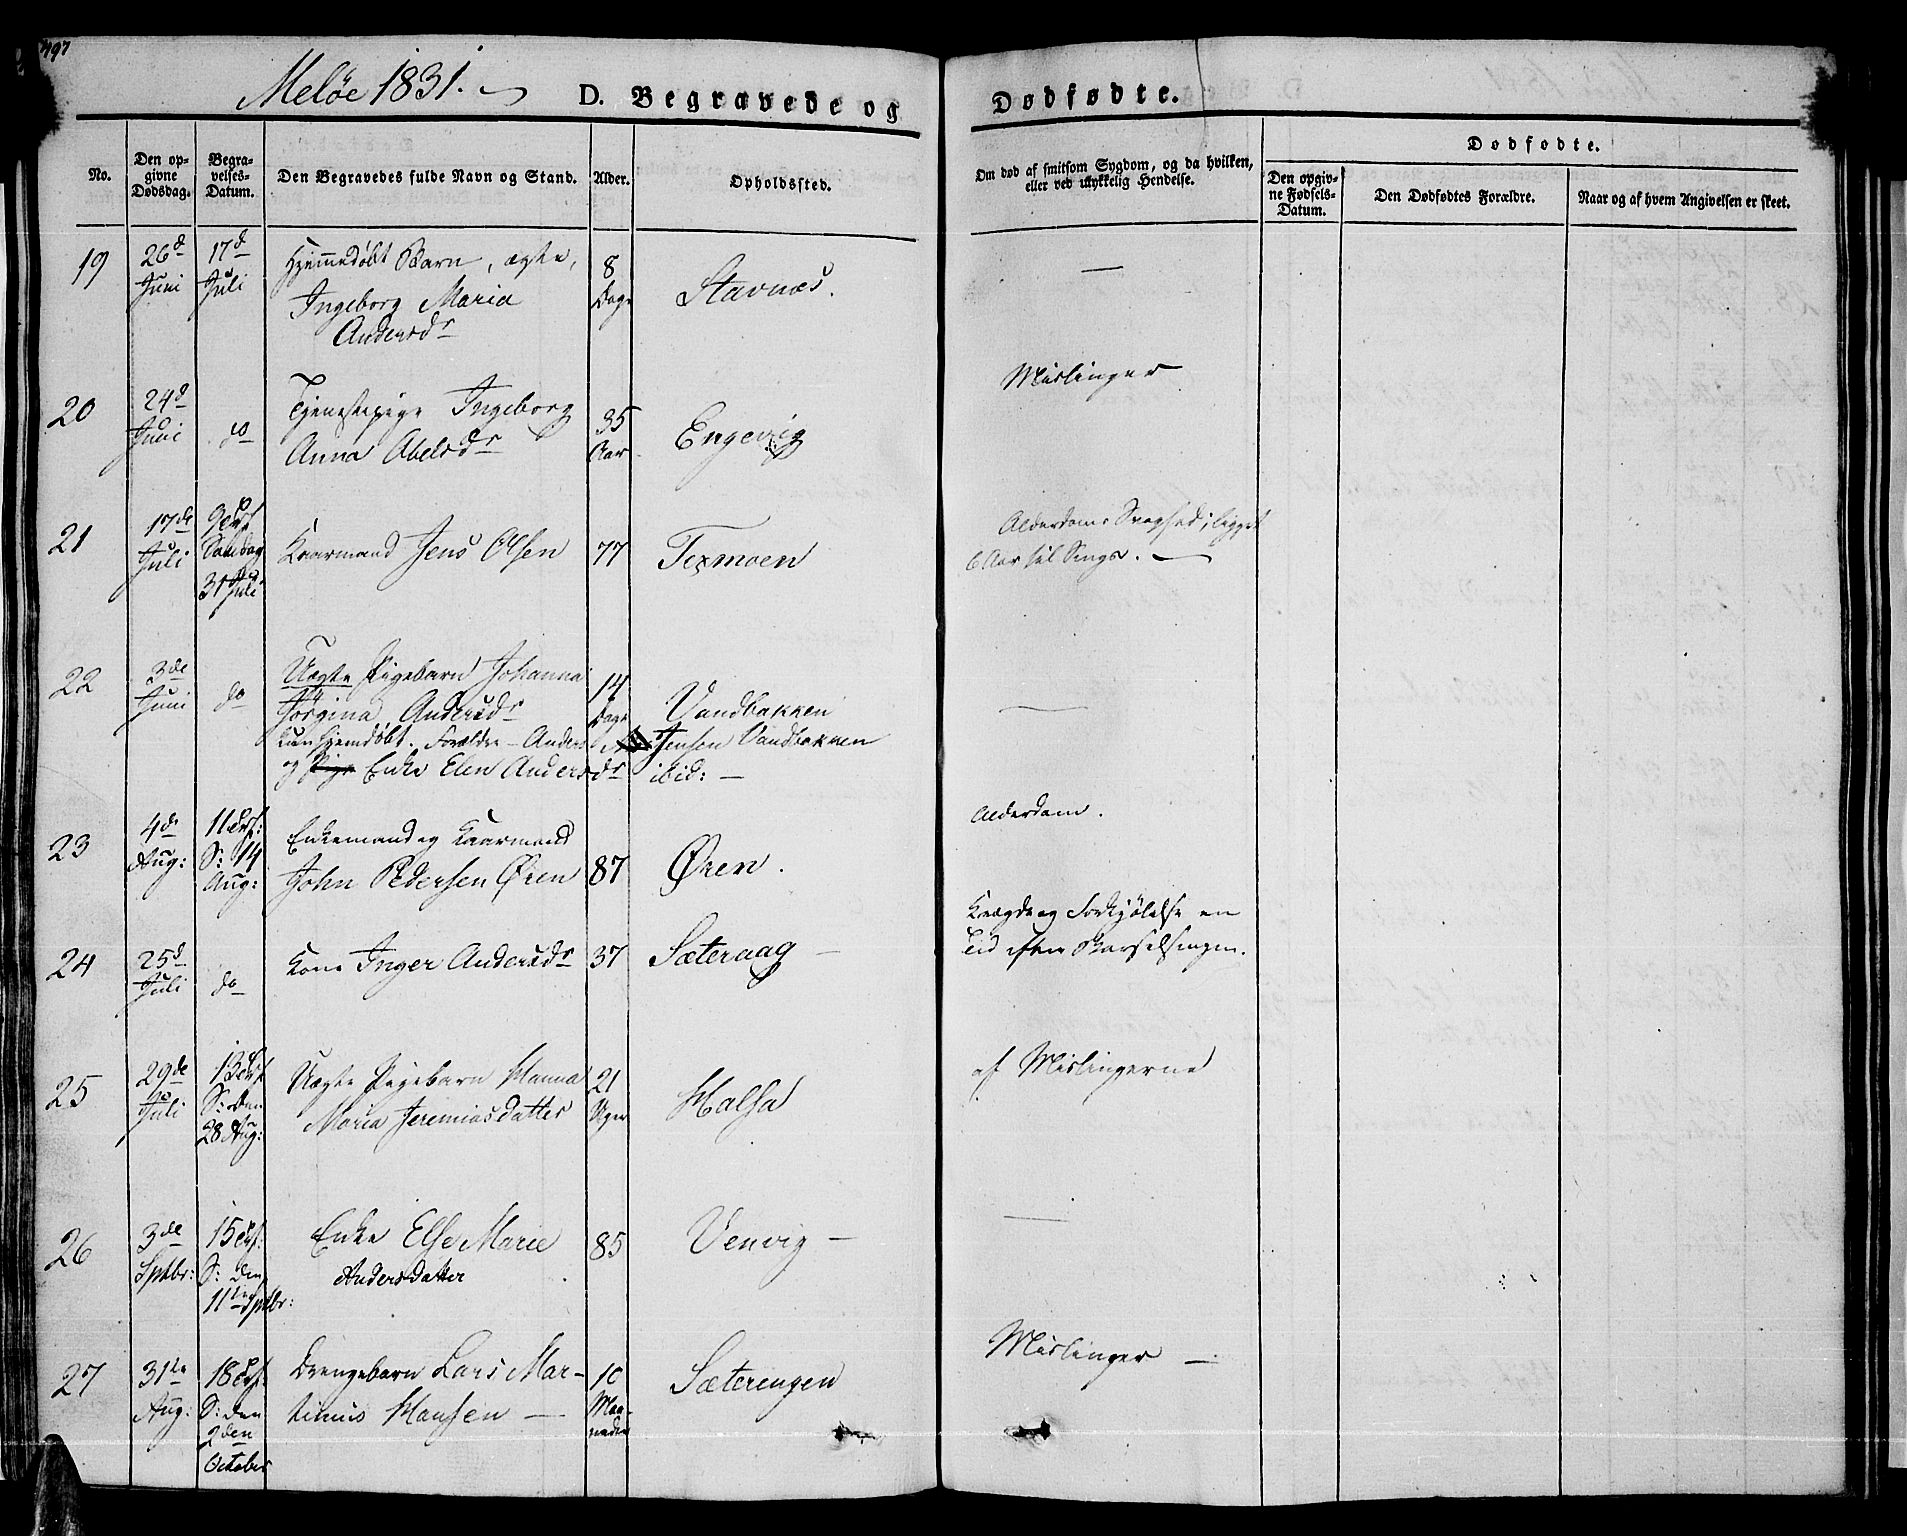 497
Meløe 1831.
D. Begravede og Dødfødte.
No.
Den opgivne Dødsdag.
Begravelses-Datum.
Den Begravedes fulde Navn og Stand.
Alder.
Opholdssted.
Om død af smitsom Sygdom, og da hvilken, eller ved ulykkelig Hendelse.
Dødfødte.
Den opgivne Fødsels-Datum.
Den Dødfødtes Forældre.
Naar og af hvem Angivelsen er skeet.
19 26d Juni 17d Juli Hjemmedøbt Barn, ægte, Ingeborg Maria Andersdr 8 Dage Stavnæs. —
20 24d Juni do Tjenestepige Ingeborg Anna Abelsdr 35 Aar Engevig Mislinger
21 17de Juli 9 Søndag 31 Juli Kaarmand Jens Olsen 77 Texmoen Alderdoms Svaghed; ligget 6 Aar til Sengs. —
22 3de Juni do Uægte Pigebarn Johanna Jørgina Andersdr
kun hjemdøbt. Forældre - Anders Jensen Vandbakken
og Pige Enke Elen Andersdr ibid: — 14 Dage Vandbakken —
23 4de Aug: 11 S: 14 Aug: Enkemand og Kaarmand John Pedersen Øren 87 Øren. Alderdom.
24 25d Juli do Kone Inger Andersdr 37 Sæteraag — og Forkjølelse en Tid efter Barselsengen.
25 29de Juli 13 S: den 28 Aug: Uægte Pigebarn Hanna Maria Jeremiasdatter 21 Uger Halsa af Mislingerne
26 3de Sptbr: 15 S: den 11te Sptbr: Enke Else Marie Andersdatter 85 Venvig — —
27 31te Aug: 18 S: den 2den October Drengebarn Lars Martinus Hansen — 10 Maaneder Sæterengen Mislinger —